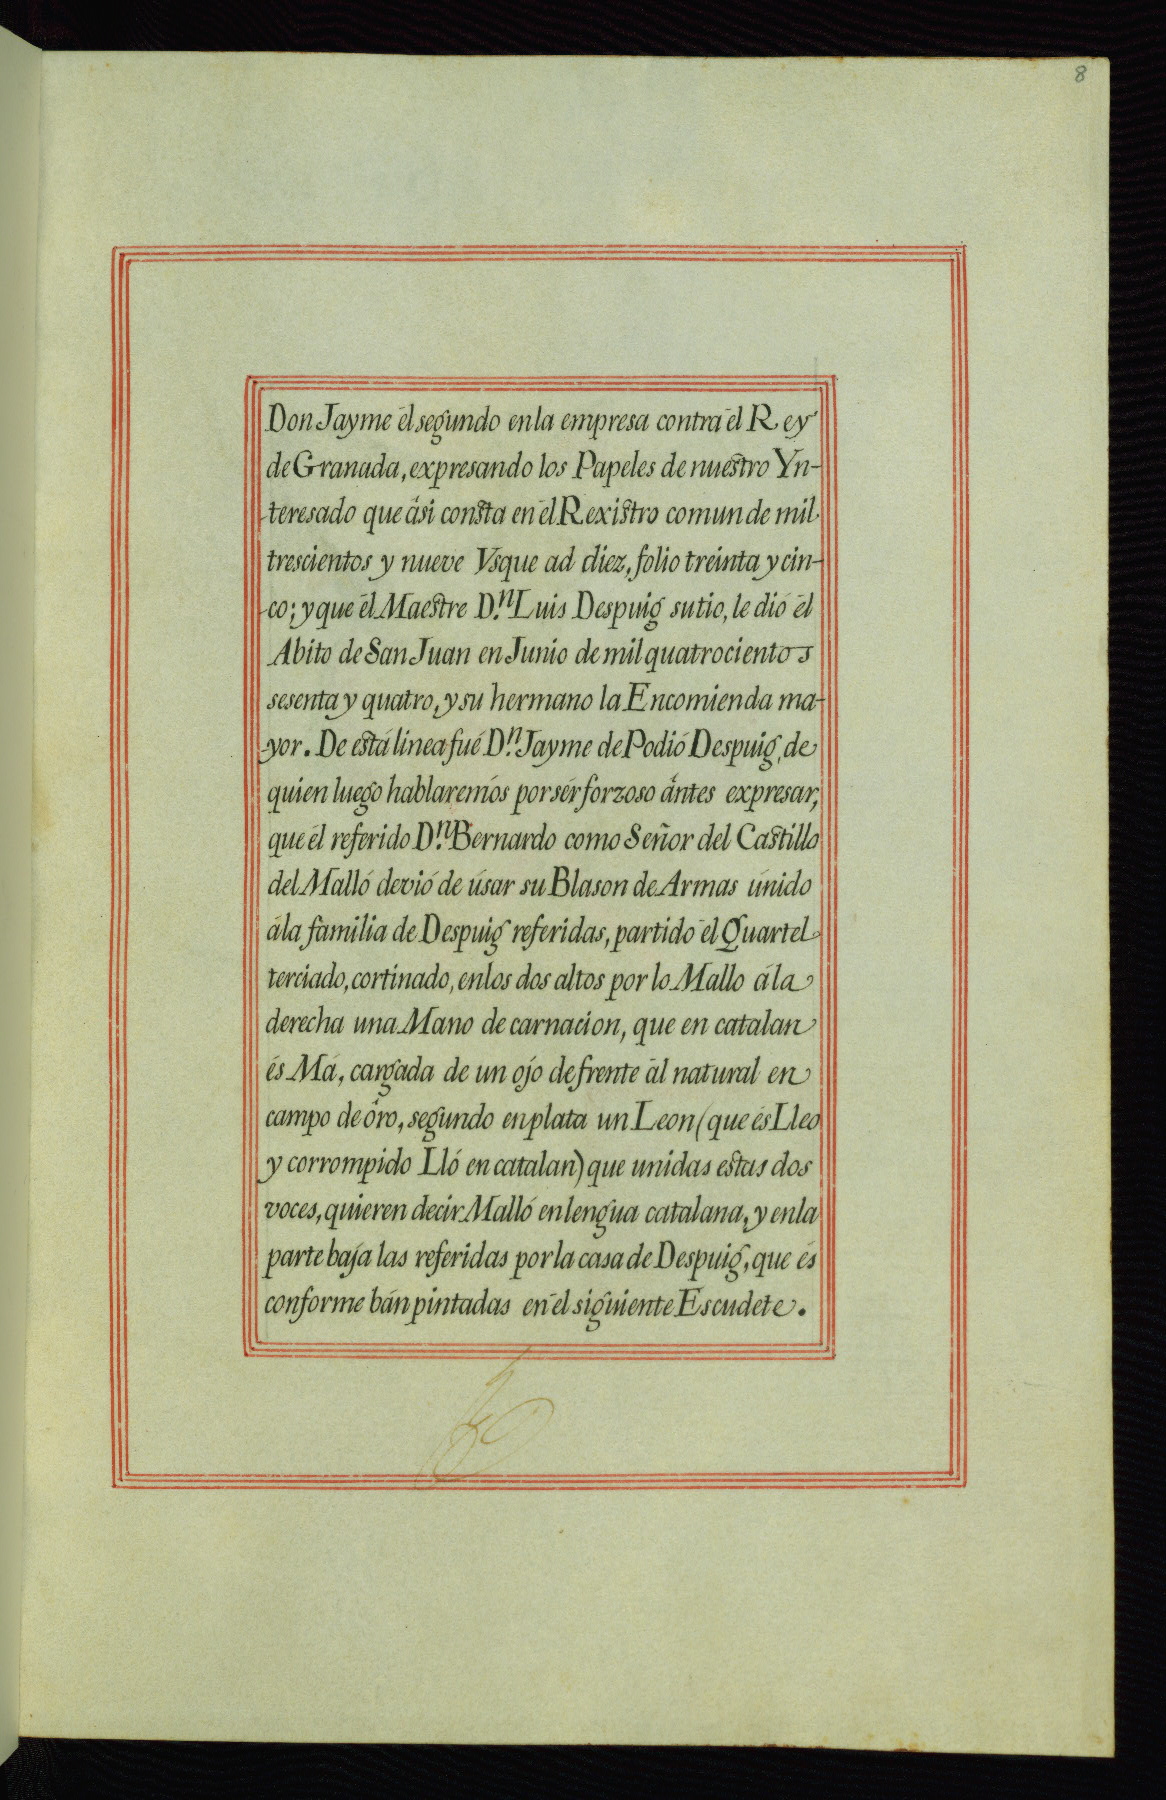 8
Don Jayme él segundo en la empresa contra él Rey
de Granada, expresando los Papeles de nuestro Yn-
-teresado que ási consta en él Rexistro comun de mil
trescientos y nueve Vsque ad diez, folio treinta y cin-
-co; y que él Maestre D.ⁿ Luis Despuig su tio, le dió él
Abito de San Juan en Junio de mil quatrocientos
sesenta y quatro, y su hermano la Encomienda ma-
-yor. De está linea fué D.ⁿ Jayme de Podió Despuig, de
quien luego hablaremós por sér forzoso ántes expresar,
que él referido D.ⁿ Bernardo como Señor del Castillo
del Malló devió de úsar su Blason de Armas único
á la familia de Despuig referidas, partido él Quartel
terciado, cortinado, en los dos altos por lo Mallo á la
derecha una Mano de carnacion, que en catalan
és Má, cargada de un ojo de frente ál natural en
campo de óro, segundo en plata un Leon (que és Lleo
y corrompido Lló en catalan) que unidas estas dos
voces, quieren decir Malló en lengua catalana, y en la
parte baja las referidas por la casa de Despuig, que és
conforme bán pintadas en él siguiente Escudete.